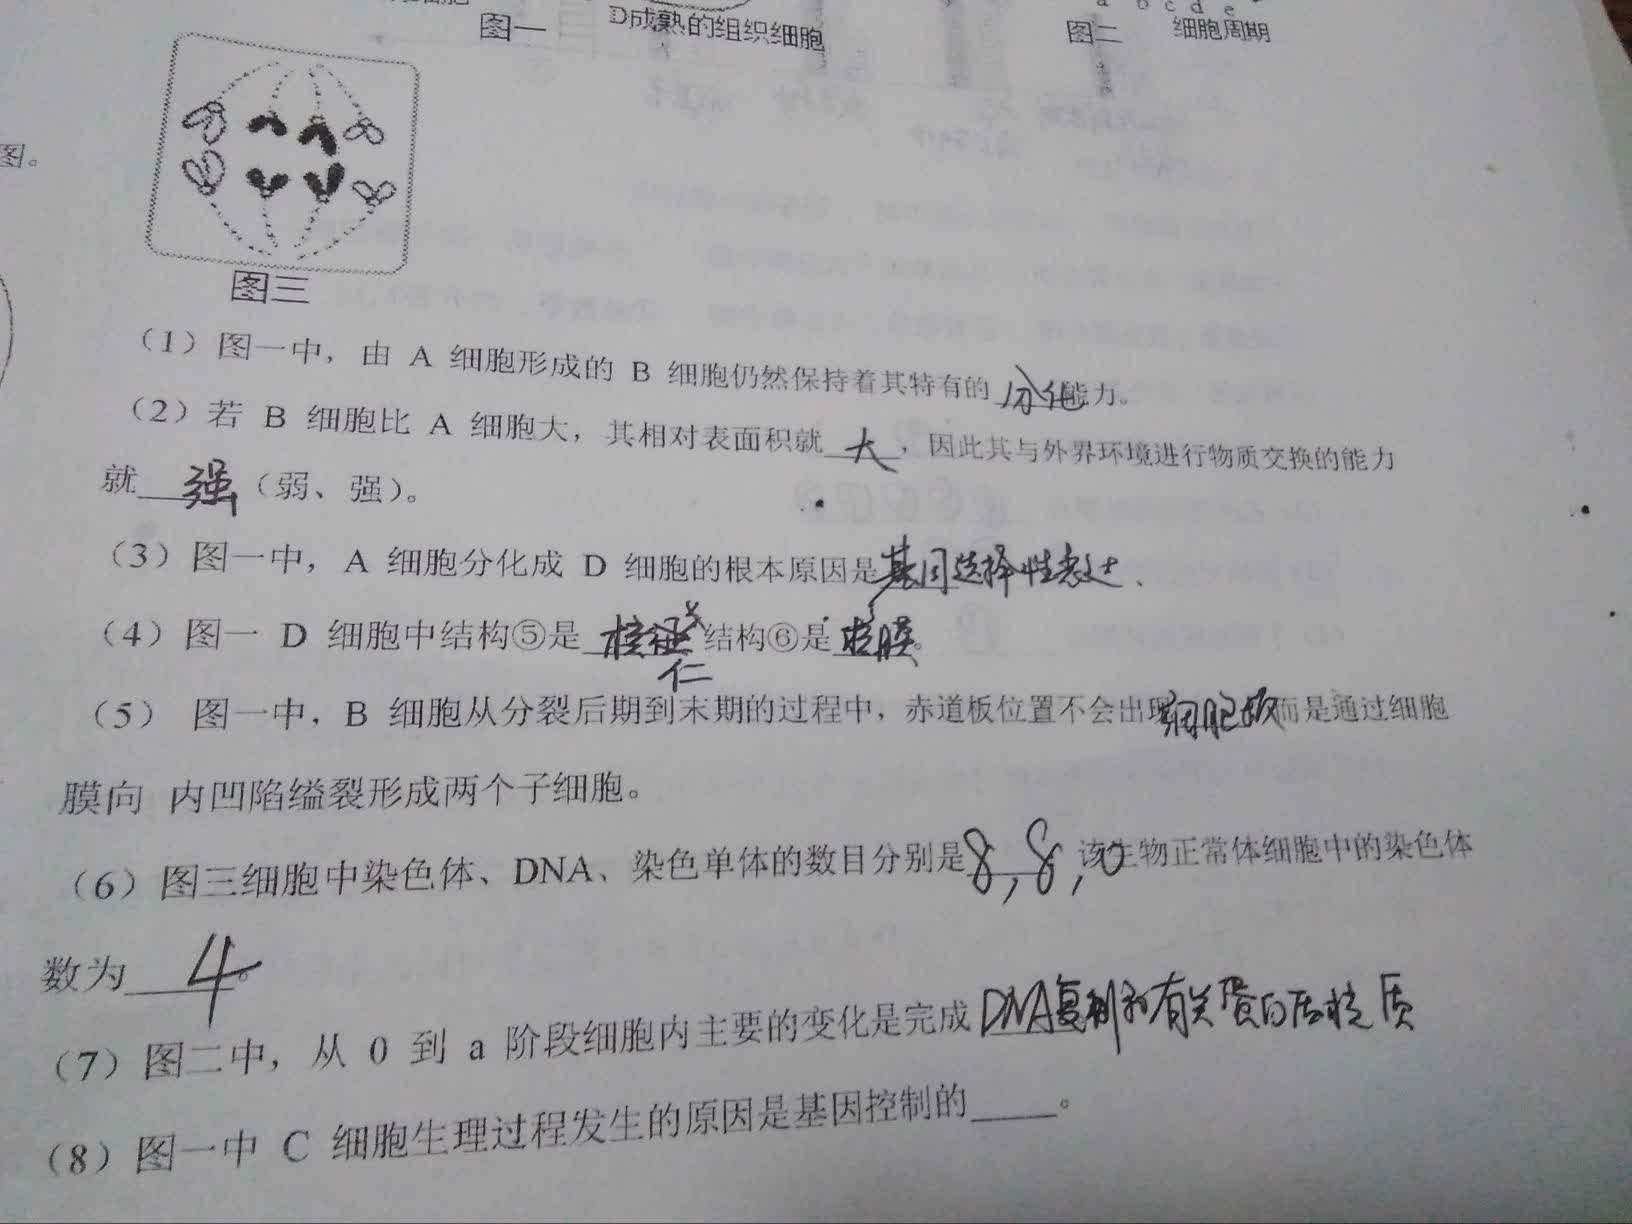 图一
D成熟的组织细胞
a b c d e
图二 细胞周期
图。
图三
（1）图一中，由 A 细胞形成的 B 细胞仍然保持着其特有的分化能力。
（2）若 B 细胞比 A 细胞大，其相对表面积就大，因此其与外界环境进行物质交换的能力
就强（弱、强）。
（3）图一中，A 细胞分化成 D 细胞的根本原因是基因选择性表达、
（4）图一 D 细胞中结构⑤是核 结构⑥是核膜。
仁
（5） 图一中，B 细胞从分裂后期到末期的过程中，赤道板位置不会出现细胞板而是通过细胞
膜向 内凹陷缢裂形成两个子细胞。
（6）图三细胞中染色体、DNA、染色单体的数目分别是8，8，0该生物正常体细胞中的染色体
数为4。
（7）图二中，从 0 到 a 阶段细胞内主要的变化是完成DNA复制和有关蛋白质
（8）图一中 C 细胞生理过程发生的原因是基因控制的____。